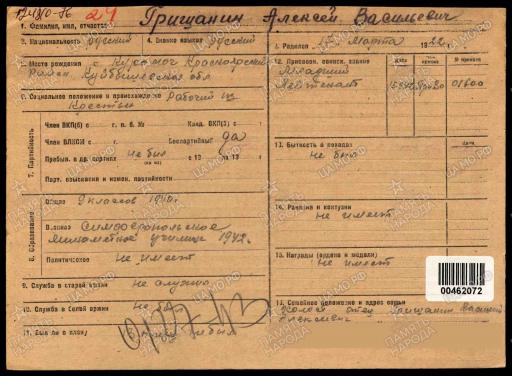 24
Гришанин Алексей Васильевич
1. Фамилия, имя, отчество
3. Национальность русский 4. Знание языков русский
5. Родился 17 Марта 1922 г.
Место рождения с. Курумоч Красноярский
Район, Куйбышевская обл
6. Социальное положение и происхождение Рабочий из
Крестьян
7. Партийность
Член ВКП(б) с г. п. б. № Канд. ВКП(б) с г.
Член ВЛКСМ с г. Беспартийный да
Пребыв. в др. партиях не был с 19 по 19 г.
Парт. взыскания и измен. партийности
8. Образование
Общее 9 классов 1940 г.
Военное Симферопольское
минометное училище 1942 г.
Политическое Не имеет
9. Служба в старой армии не служил
10. Служба в белой армии Не был
11. Был ли в плену
12. Присвоен. воинск. звание № приказа
Младший
Лейтенант 01600
13. Бытность в походах
не был
Дата
14. Ранения и контузии
не имеет
15. Награды (ордена и медали)
Не имеет
00462072
16. Семейное положение и адрес семьи
Холост отец Гришанин Василий
Алексеевич
ПАМЯТЬ НАРОДА
ЦАМО.РФ